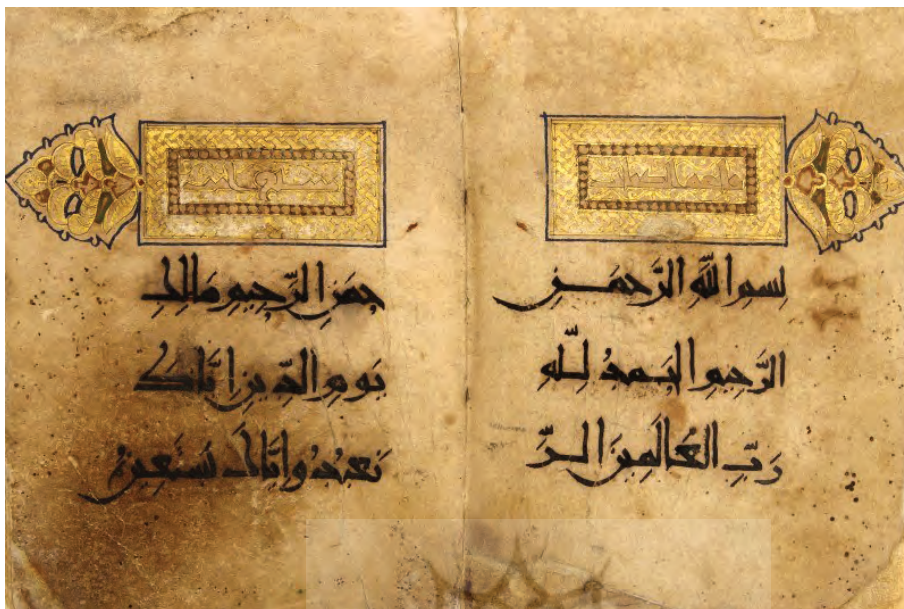 فاتحة الكتاب
بسم اللَّه الرَّحمَـنِ
الرَّحِيمِ الحَمدُ لـلَّهِ
رَبِّ العَالَمِينَ الـرَّ
حمَنِ الرَّحِيمِ مَالِكِ
يَومِ الدِّينِ ايَّاكَ
نَعبُدُ وايَّاكَ نَستَعِينُ